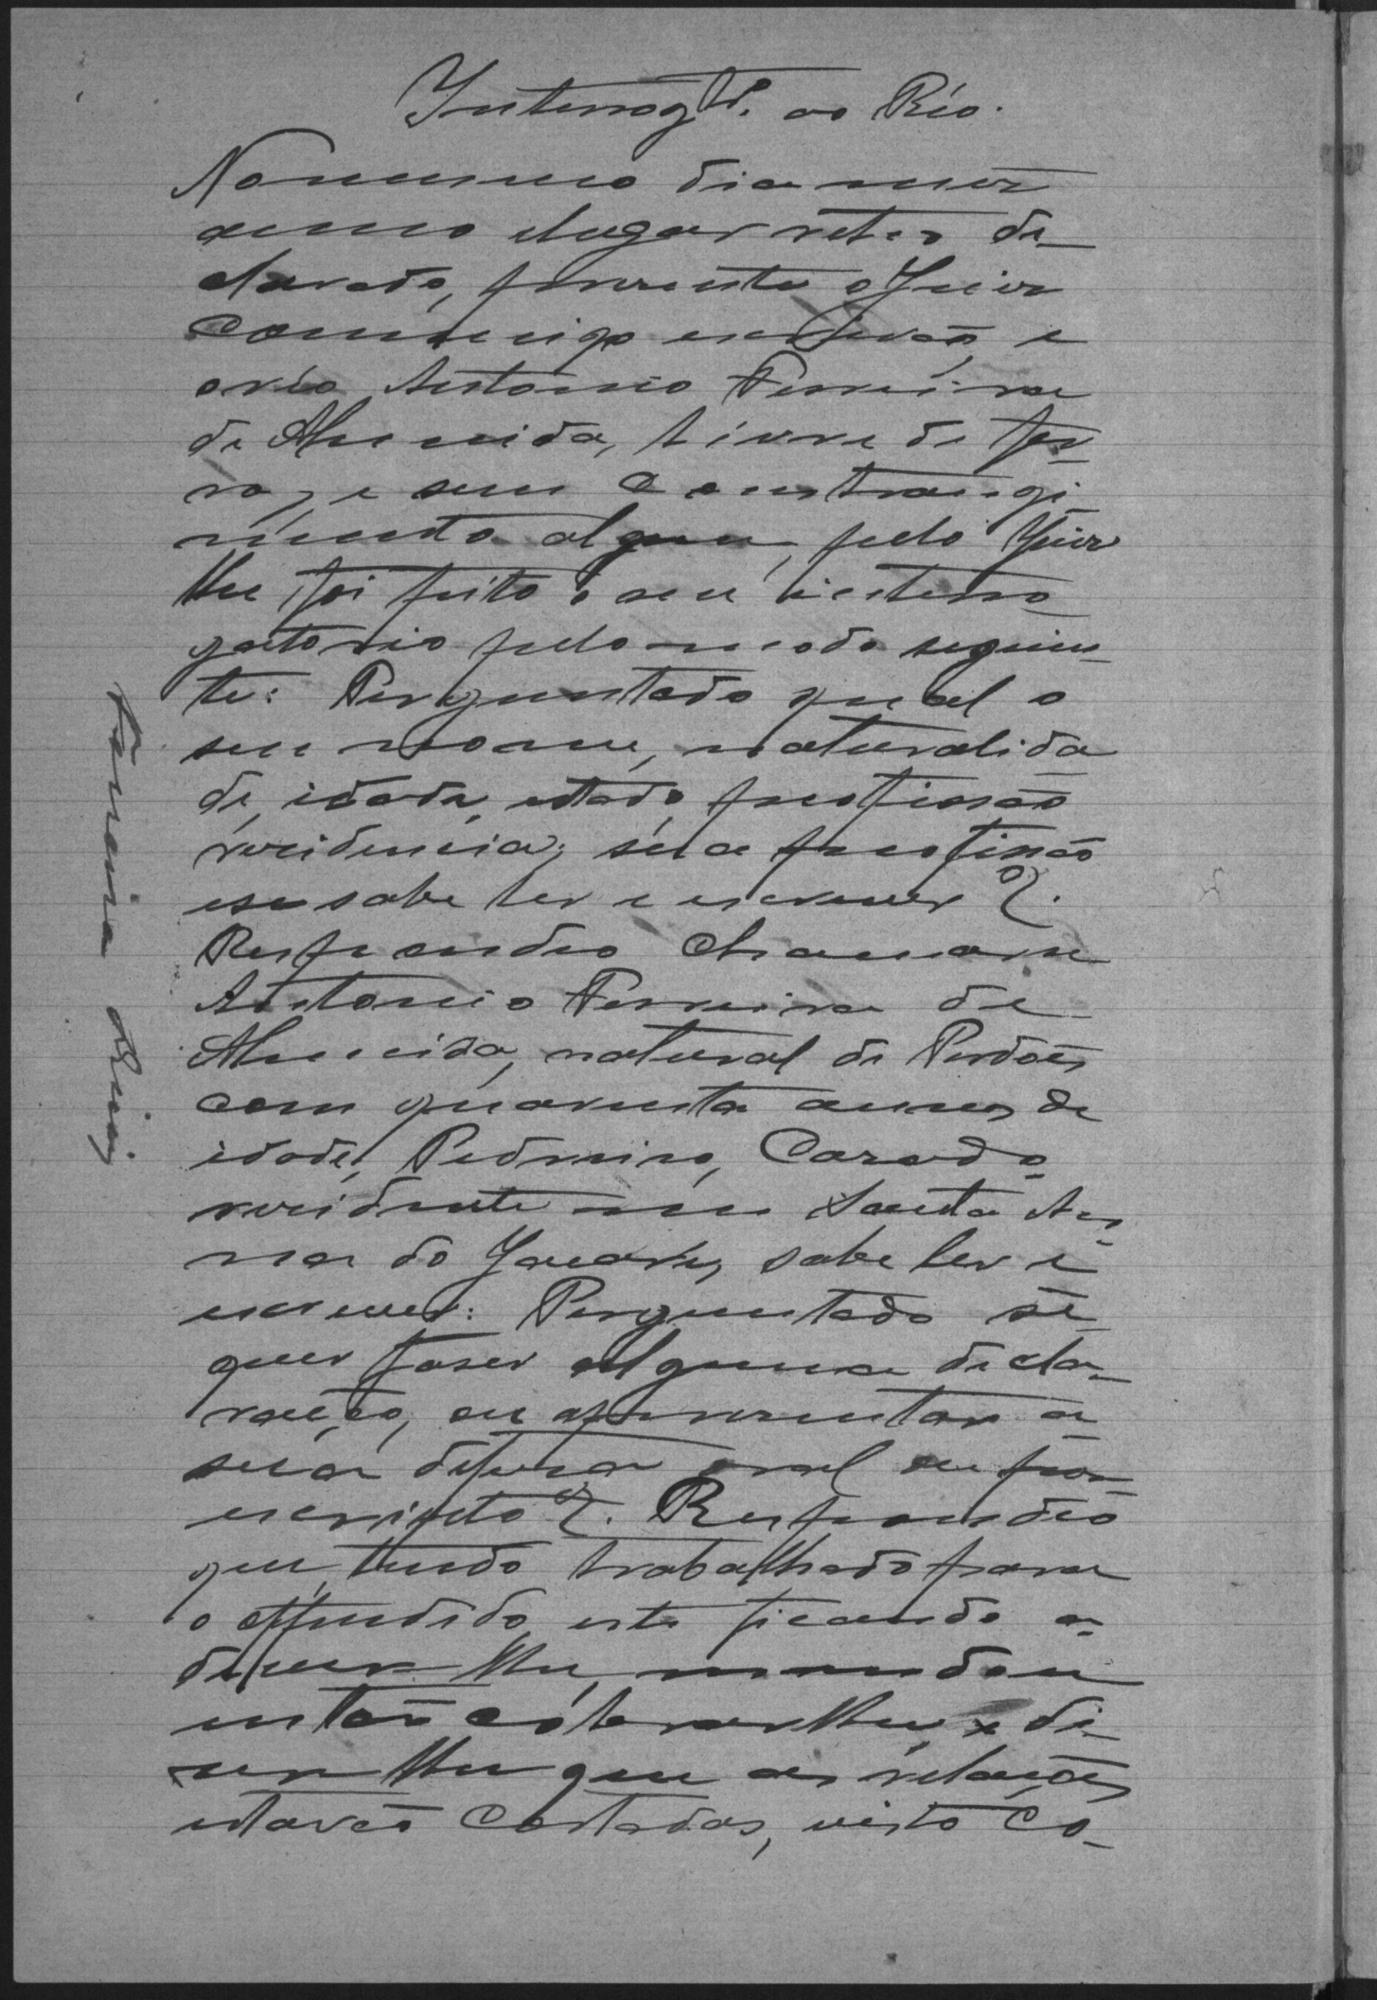 Interrogtº. ao Réo.
No mesmo dia mez
anno e lugar retro de-
clarado, presente o Juiz
commigo escrivão, e
o réo Antonio Ferreira
de Almeida, livre de fer-
ros, e sem constrangi
mento algum, pelo Juiz
lhe foi feito o seu interro-
gatorio pelo modo seguin-
te: Perguntado qual o
seu nome, naturalida
de, idade, estado, profissão
rezidencia, sua profissão
e se sabe ler e escrever?.
Respondeo chamarse
Antonio Ferreira de
Almeida, natural de Perdões
com quarenta annos de
idade, Pedreiro, Cazado,
rezidente em Santa An-
na do Jacaré, sabe ler e
escrever: Perguntado se
quer faser alguma decla-
ração, ou aprezentar a
sua defeza oral ou por
escripto?. Respondeo
que, tendo trabalhado para
o offendido, este ficando a
dever lhe, mandou
então cobrar lhe, e di-
zer lhe que as relações
estavão cortadas, visto co-
Ferreira